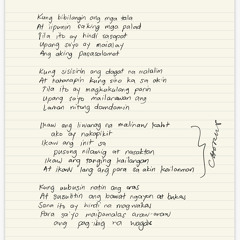 Kung bibilangin ang mga tala
At ipunin saking mga palad
Tila ito ay hindi sasapat
Upang sayo ay maialay
Ang aking pasasalamat

Kung sisirin ang dagat na malalim
At tatanapin kung sino ka sa akin
Tila ito ay magkukulang parin
Upang sayo mailarawan ang
Laman nitong damdamin

Ikaw ang liwanag na malinaw kahit
ako ay nakapikit
Ikaw ang init sa
pusong nilamig at nasaktan
Ikaw ang tanging kailangan
At ikaw lang ang para sa akin kailanman
CORUS

Kung uubusin natin ang oras
At susulitin ang bawat ngayon at bukas
Sana ito ay hindi na magwakas
Para sa'yo maipamalas araw-araw
ang pag-ibig na wagas